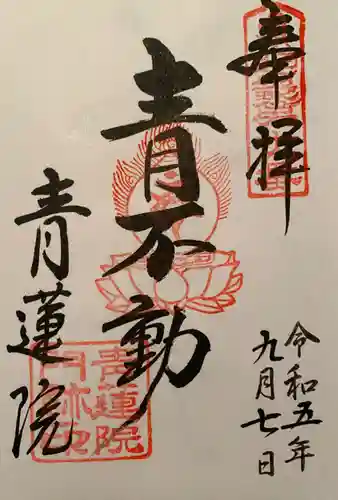 奉拝
青不動
青蓮院
令和五年
九月七日
青蓮院
門跡印